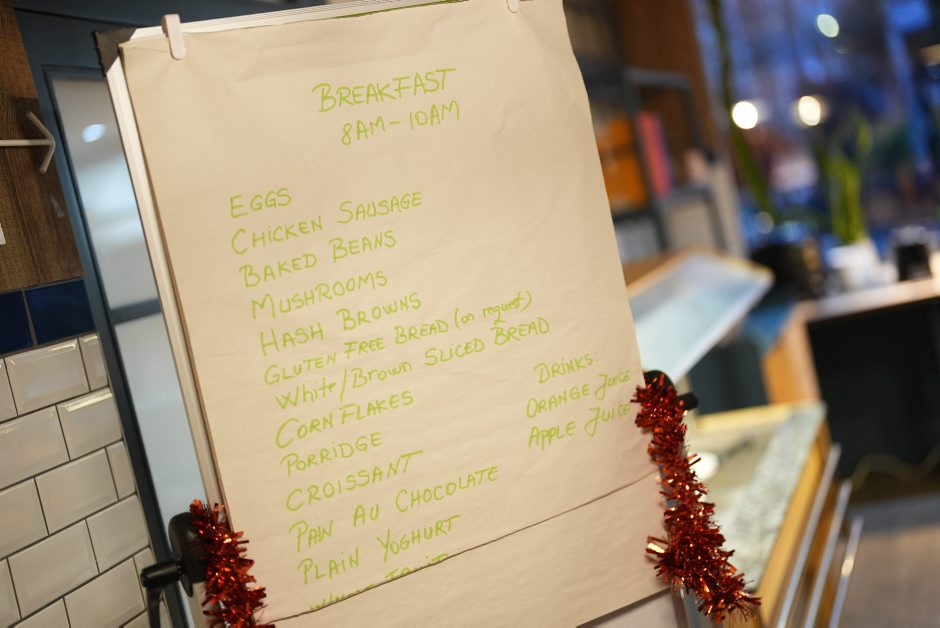 BREAKFAST
8AM-10AM
EGGS
CHICKEN SAUSAGE
BAKED BEANS
MUSHROOMS
HASH BROWNS
GLUTEN FREE BREAD (on request)
White/Brown SLICED BREAD
CORN FLAKES
PORRIDGE
CROISSANT
PAIN AU CHOCOLATE
PLAIN YOGHURT
DRINKS:
ORANGE JUICE
APPLE JUICE